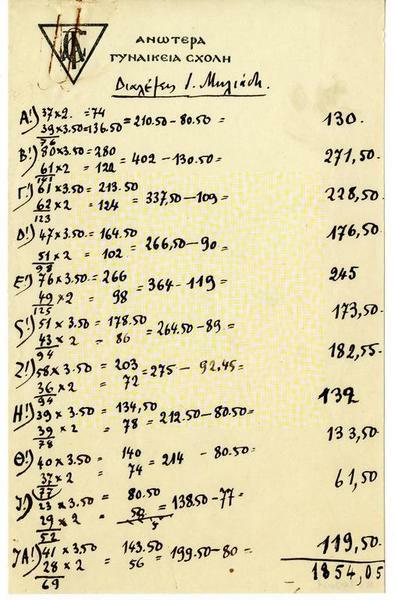 ΑΝΩΤΕΡΑ
ΓΥΝΑΙΚΕΙΑ ΣΧΟΛΗ
Διαλέξεις Ι. Μηλιάδη.
Α!) 37x2. =74
39x3.50=136.50 =210.50-80.50= 130.
76
Β!) 80x3.50=280
61x2 = 122 =402-130.50= 271,50.
141
Γ!) 61x3.50= 213.50
62x2 = 124 =337.50-109= 228,50.
123
Δ!) 47x3.50.=164.50
51x2 = 102 =266,50-90= 176,50.
98
Ε!) 76x3.50=266
49x2 = 98 =364-119= 245
125
Ϛ!) 51x3.50= 178.50
43x2 = 86 =264.50-89= 173,50.
94
Ζ!) 58x3.50= 203
36x2 = 72 =275- 92.45= 182,55.
94
Η!) 39x3.50= 134,50
39x2 = 78 =212.50-80.50= 132
78
Θ!) 40x3.50 = 140
37x2 = 74 =214 - 80.50= 133,50.
77
Ι!) 23x3.50 = 80.50
29x2 = 58 =138.50-77= 61,50
52
ΙΑ!) 41x3,50 = 143.50
28x2 = 56 =199.50-80= 119,50.
69
1854,05